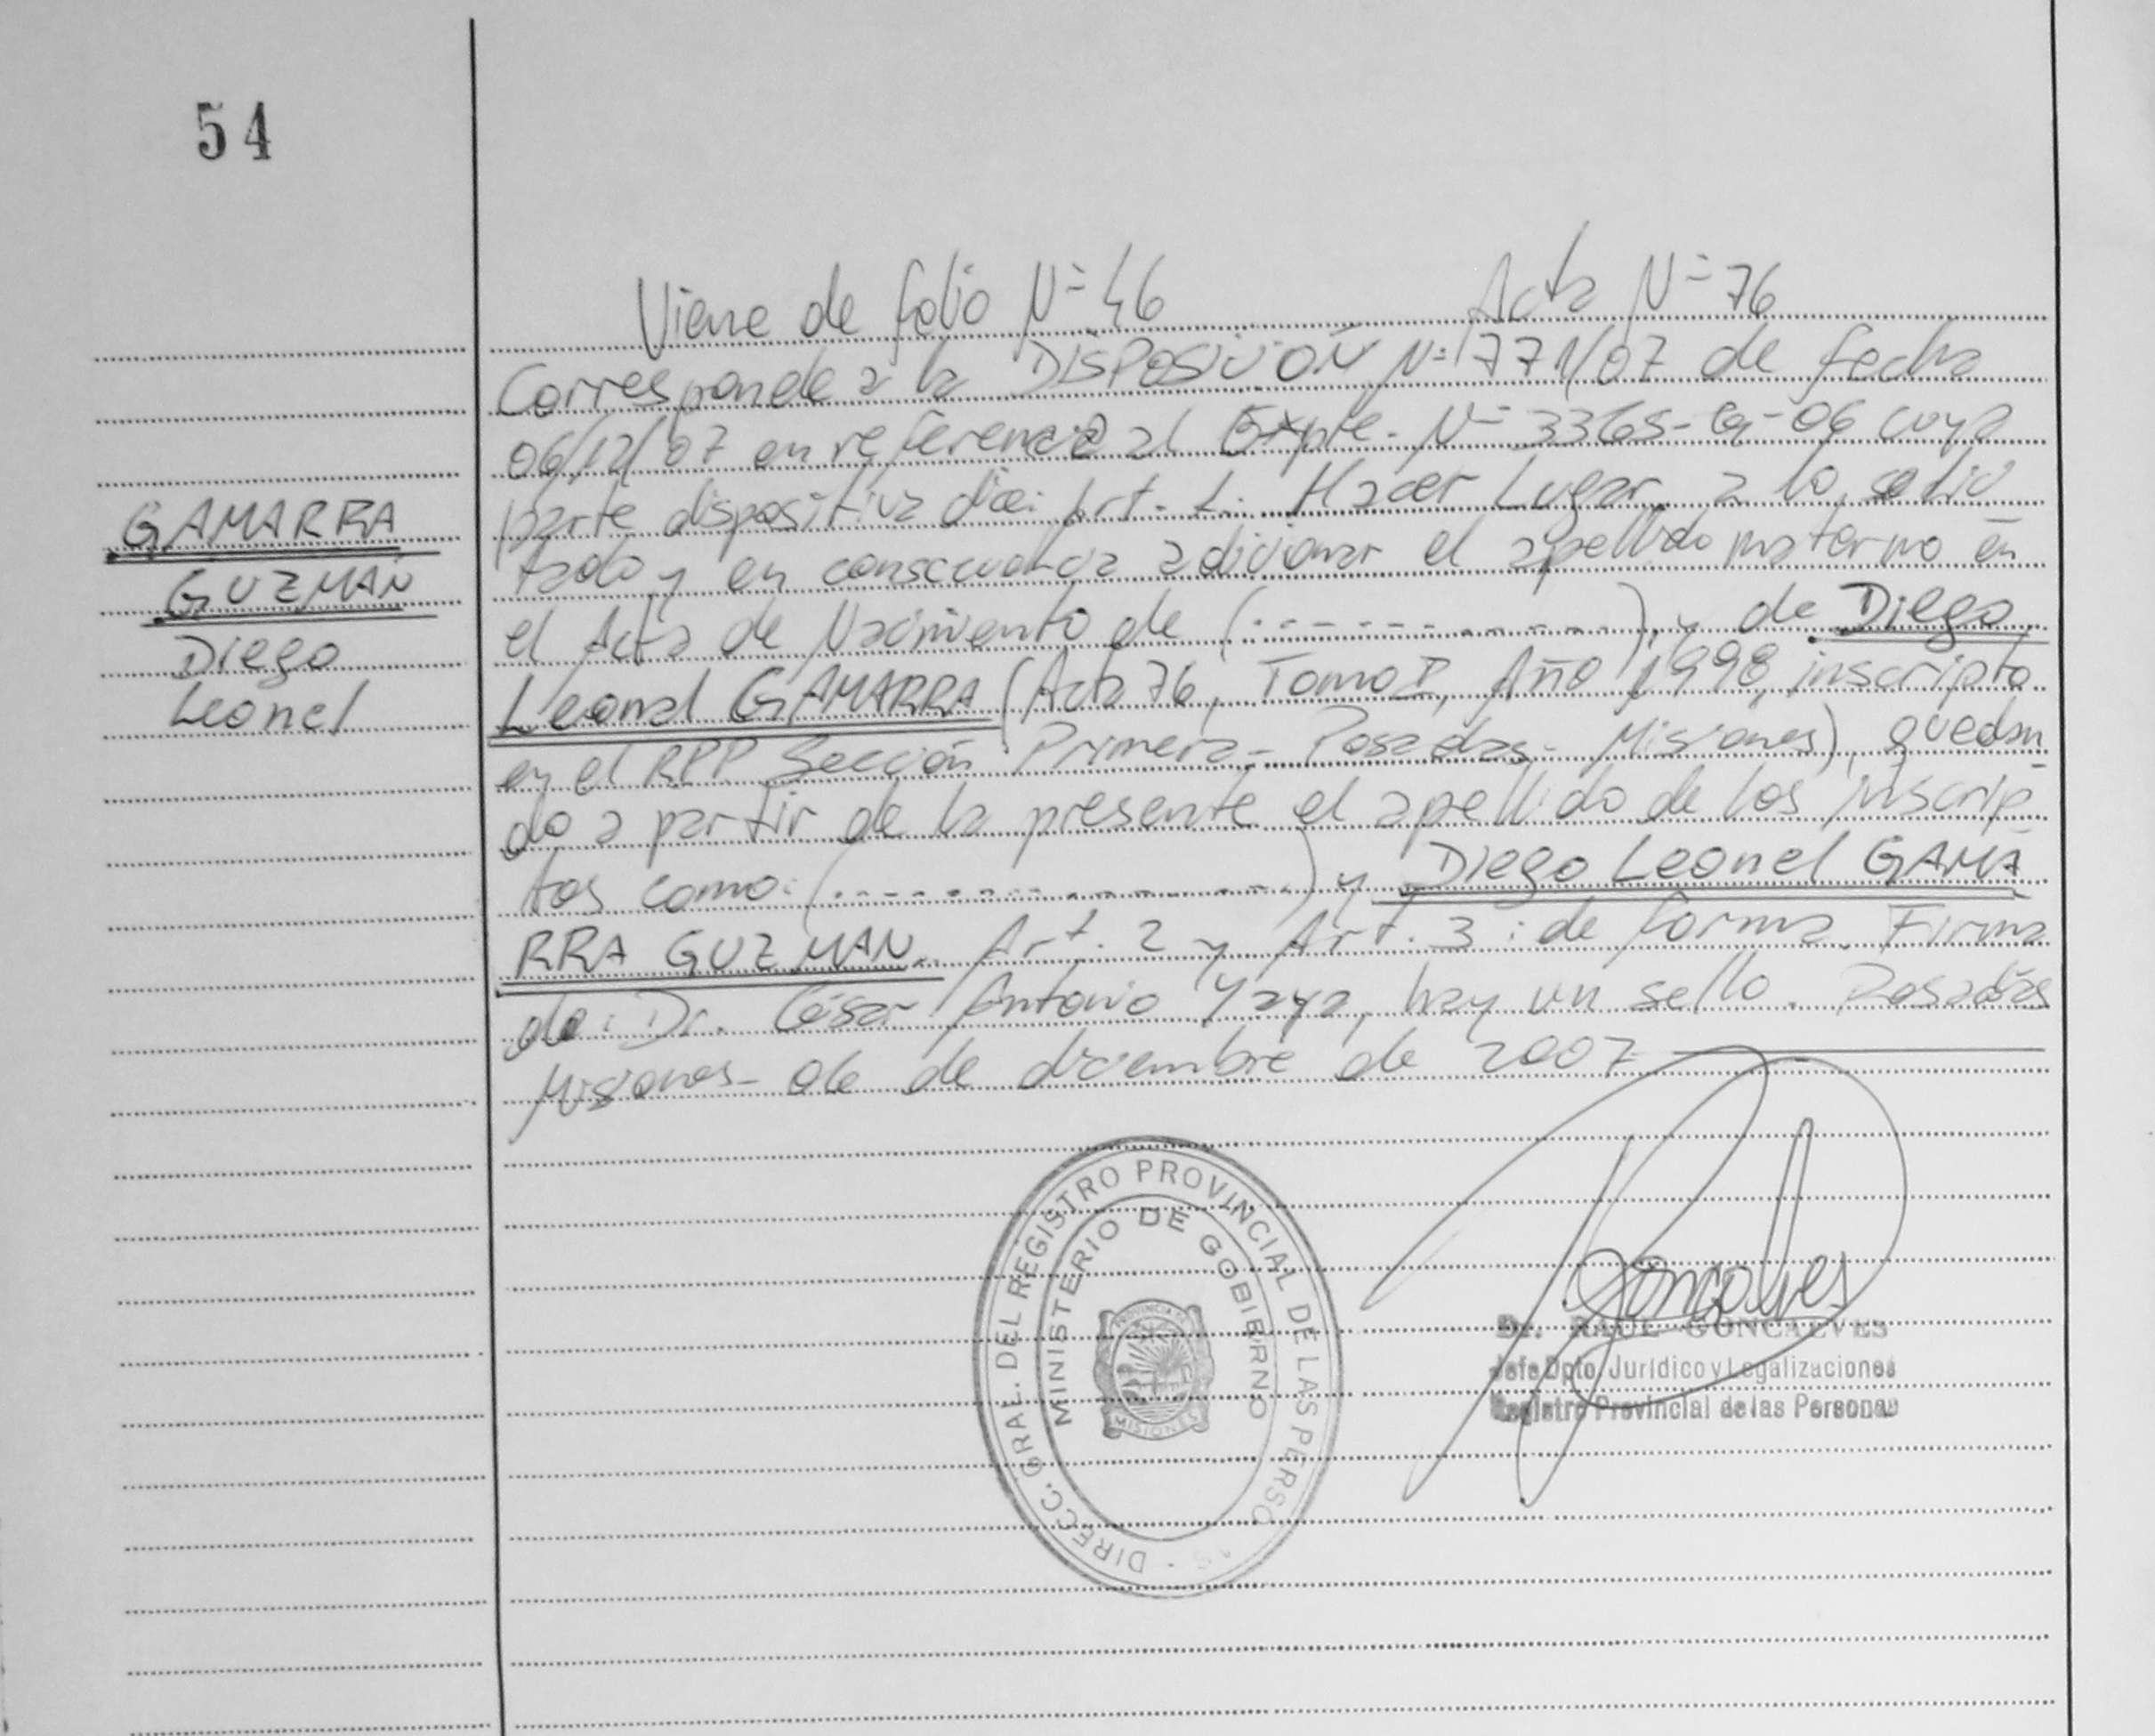 54
Viene de folio Nº 46 Acta Nº 76
Corresponde a la DISPOSICIÓN Nº 1771/07 de fecha
06/12/07 en referencia al Expte. Nº 3365-G-06 cuya
parte dispositiva dice: Art. 1: Hacer Lugar a lo solici
tado y en consecuencia adicionar el apellido materno en
el Acta de Nacimiento de (..............) y de Diego
Leonel GAMARRA (Acta 76, Tomo I, Año 1998, inscripta
en el RPP Sección Primera - Posadas - Misiones), quedan
do a partir de la presente el apellido de los inscrip
tos como: (..............) y Diego Leonel GAMA
RRA GUZMAN. Art. 2 y Art. 3: de forma. Firma
do: Dr. César Antonio Yaya, hay un sello. Posadas
Misiones - 06 de diciembre de 2007
GAMARRA
GUZMAN
Diego
Leonel
DIRECC. GRAL. DEL REGISTRO PROVINCIAL DE LAS PERSO AS
MINISTERIO DE GOBIERNO
PROVINCIA DE
MISIONES
Goncalves
Dr. RAUL GONCALVES
Jefe Dpto. Jurídico y Legalizaciones
Registro Provincial de las Personas